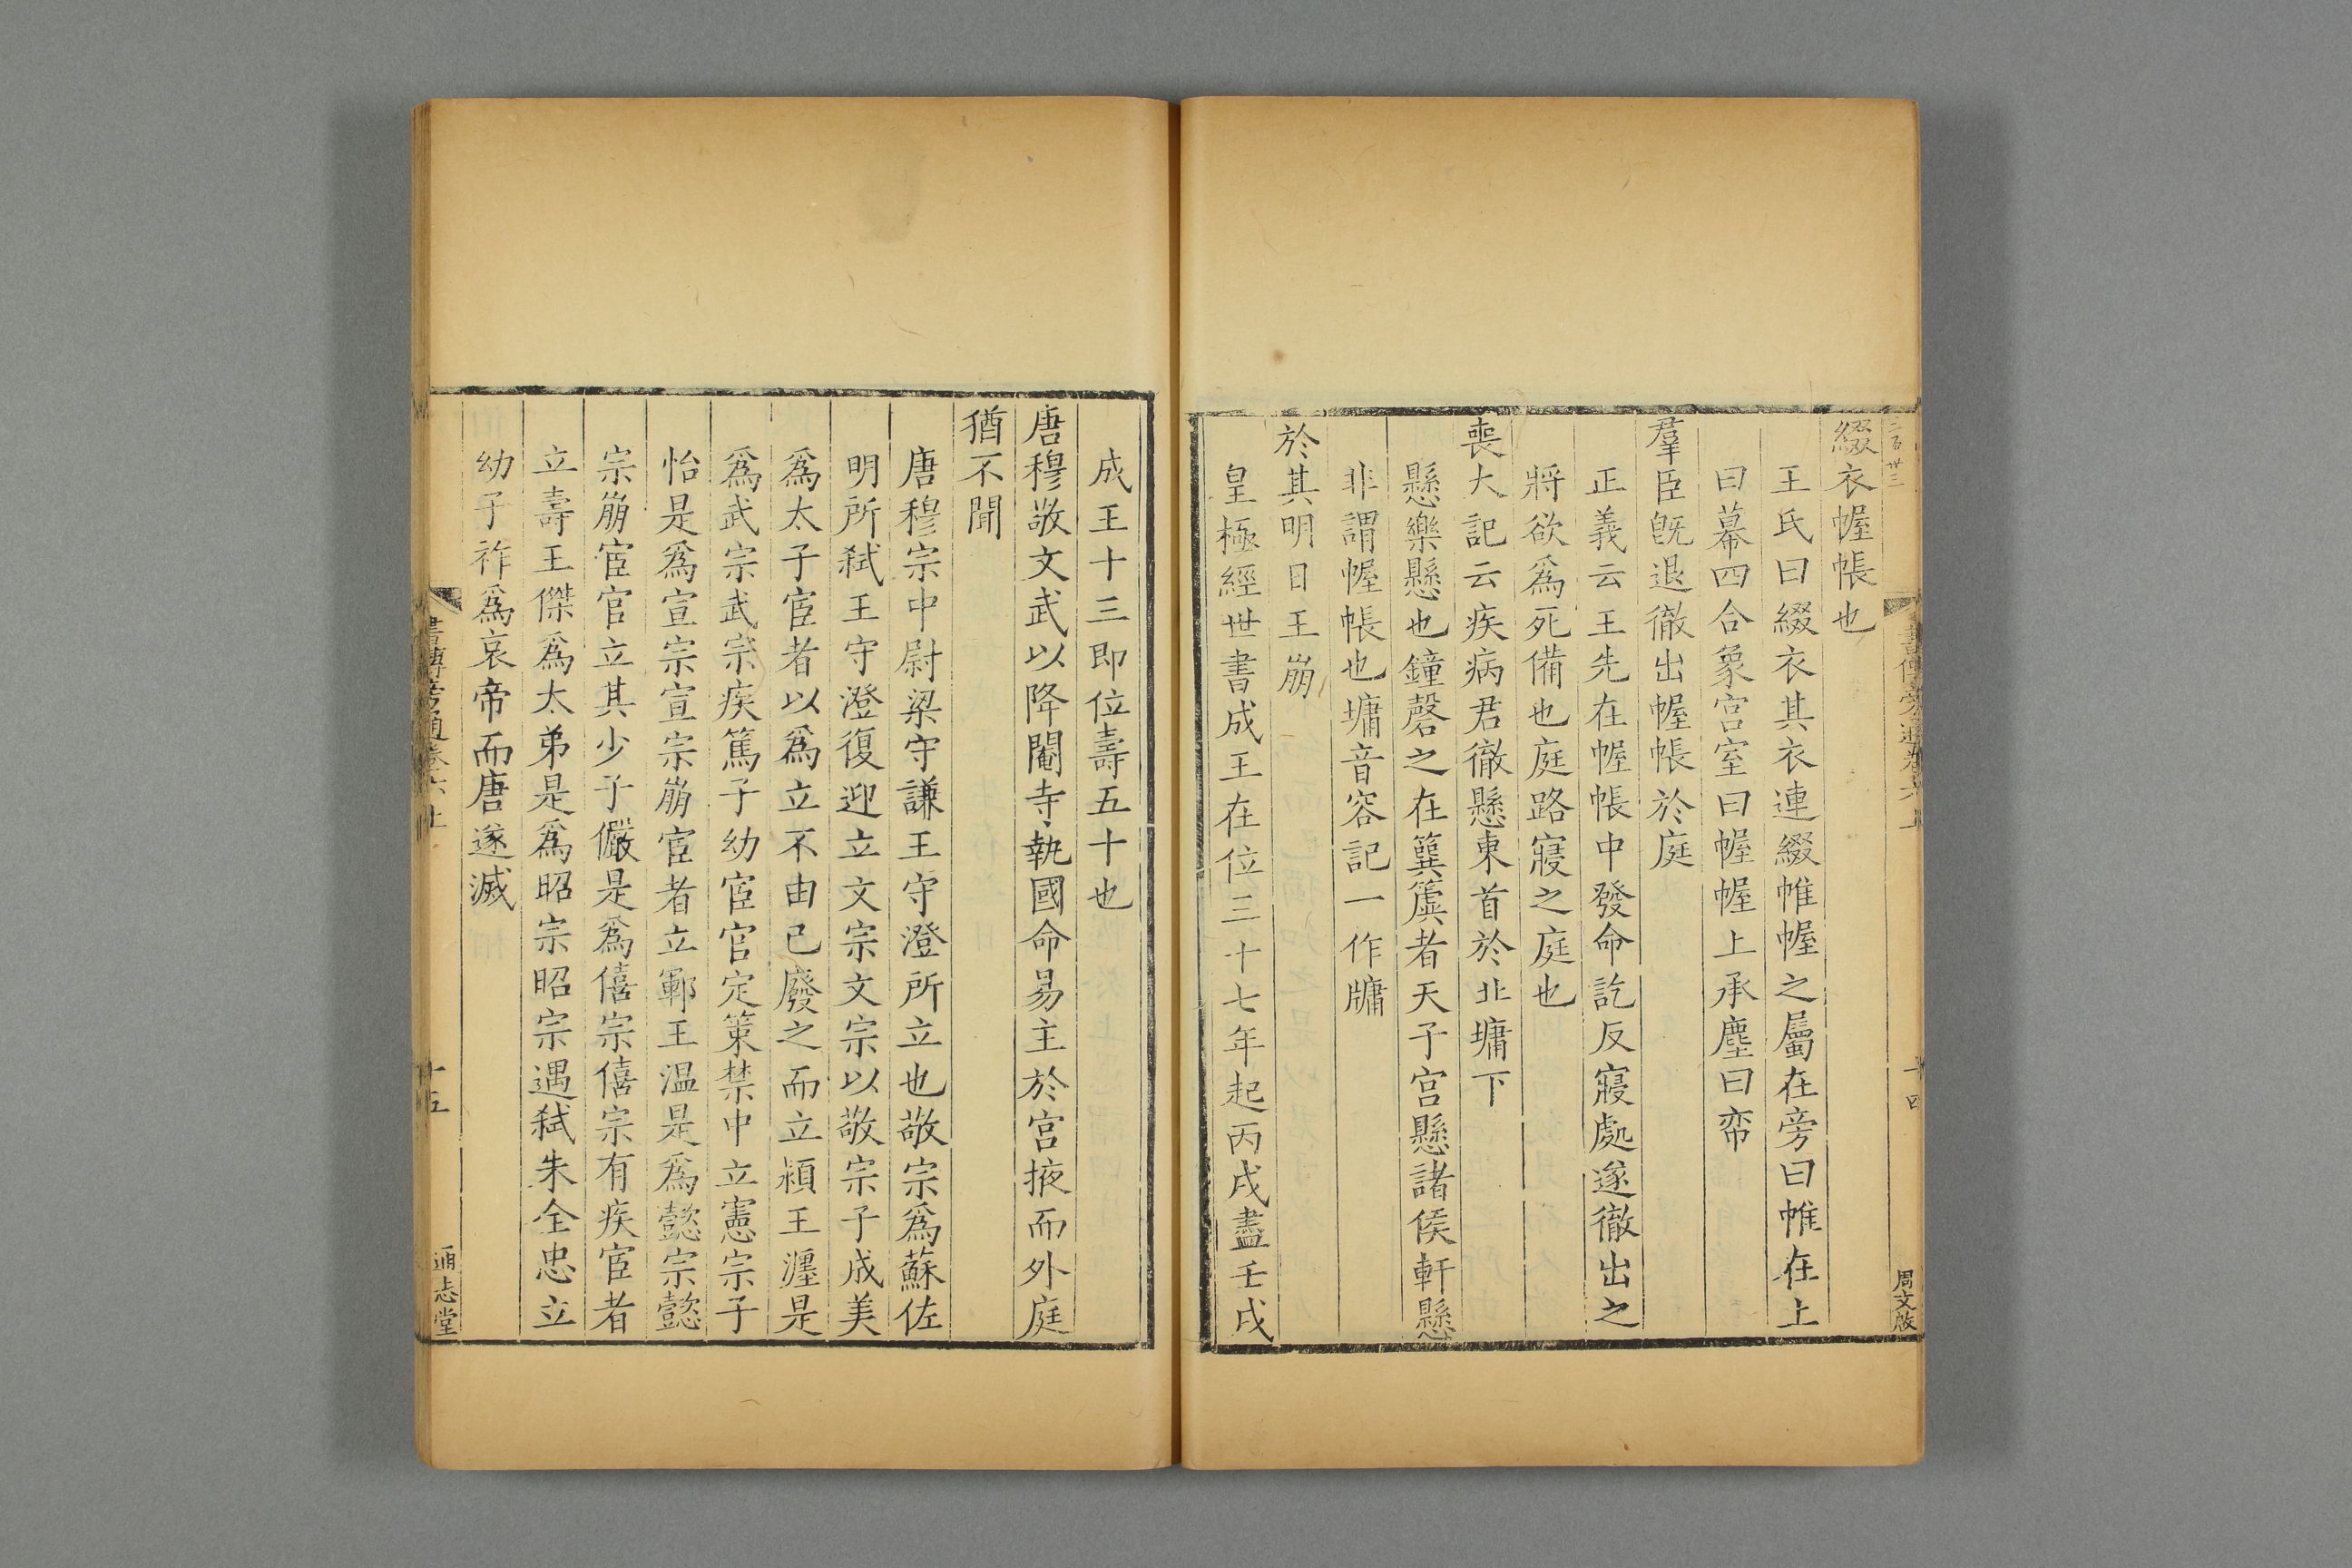 二百廿三
書傳旁通卷六上
十四
周文啟
綴衣幄帳也
王氏曰綴衣其衣連綴帷幄之屬在旁曰帷在上
曰幕四合象宮室曰幄幄上承塵曰帟
羣臣旣退徹出幄帳於庭
正義云王先在幄帳中發命訖反寢處遂徹出之
將欲爲死備也庭路寢之庭也
喪大記云疾病君徹懸東首於北墉下
懸樂懸也鐘磬之在簨簴者天子宮懸諸侯軒懸
非謂幄帳也墉音容記一作牖
於其明日王崩
皇極經世書成王在位三十七年起丙戌盡壬戌
成王十三即位壽五十也
唐穆敬文武以降閹寺執國命易主於宮掖而外庭
猶不聞
唐穆宗中尉梁守謙王守澄所立也敬宗爲蘇佐
明所弑王守澄復迎立文宗文宗以敬宗子成美
爲太子宦者以爲立不由己廢之而立潁王瀍是
爲武宗武宗疾篤子幼宦官定策禁中立憲宗子
怡是爲宣宗宣宗崩宦者立鄆王温是爲懿宗懿
宗崩宦官立其少子儼是爲僖宗僖宗有疾宦者
立壽王傑爲太弟是爲昭宗昭宗遇弑朱全忠立
幼子祚爲哀帝而唐遂滅
書傳旁通卷六上
十五
通志堂